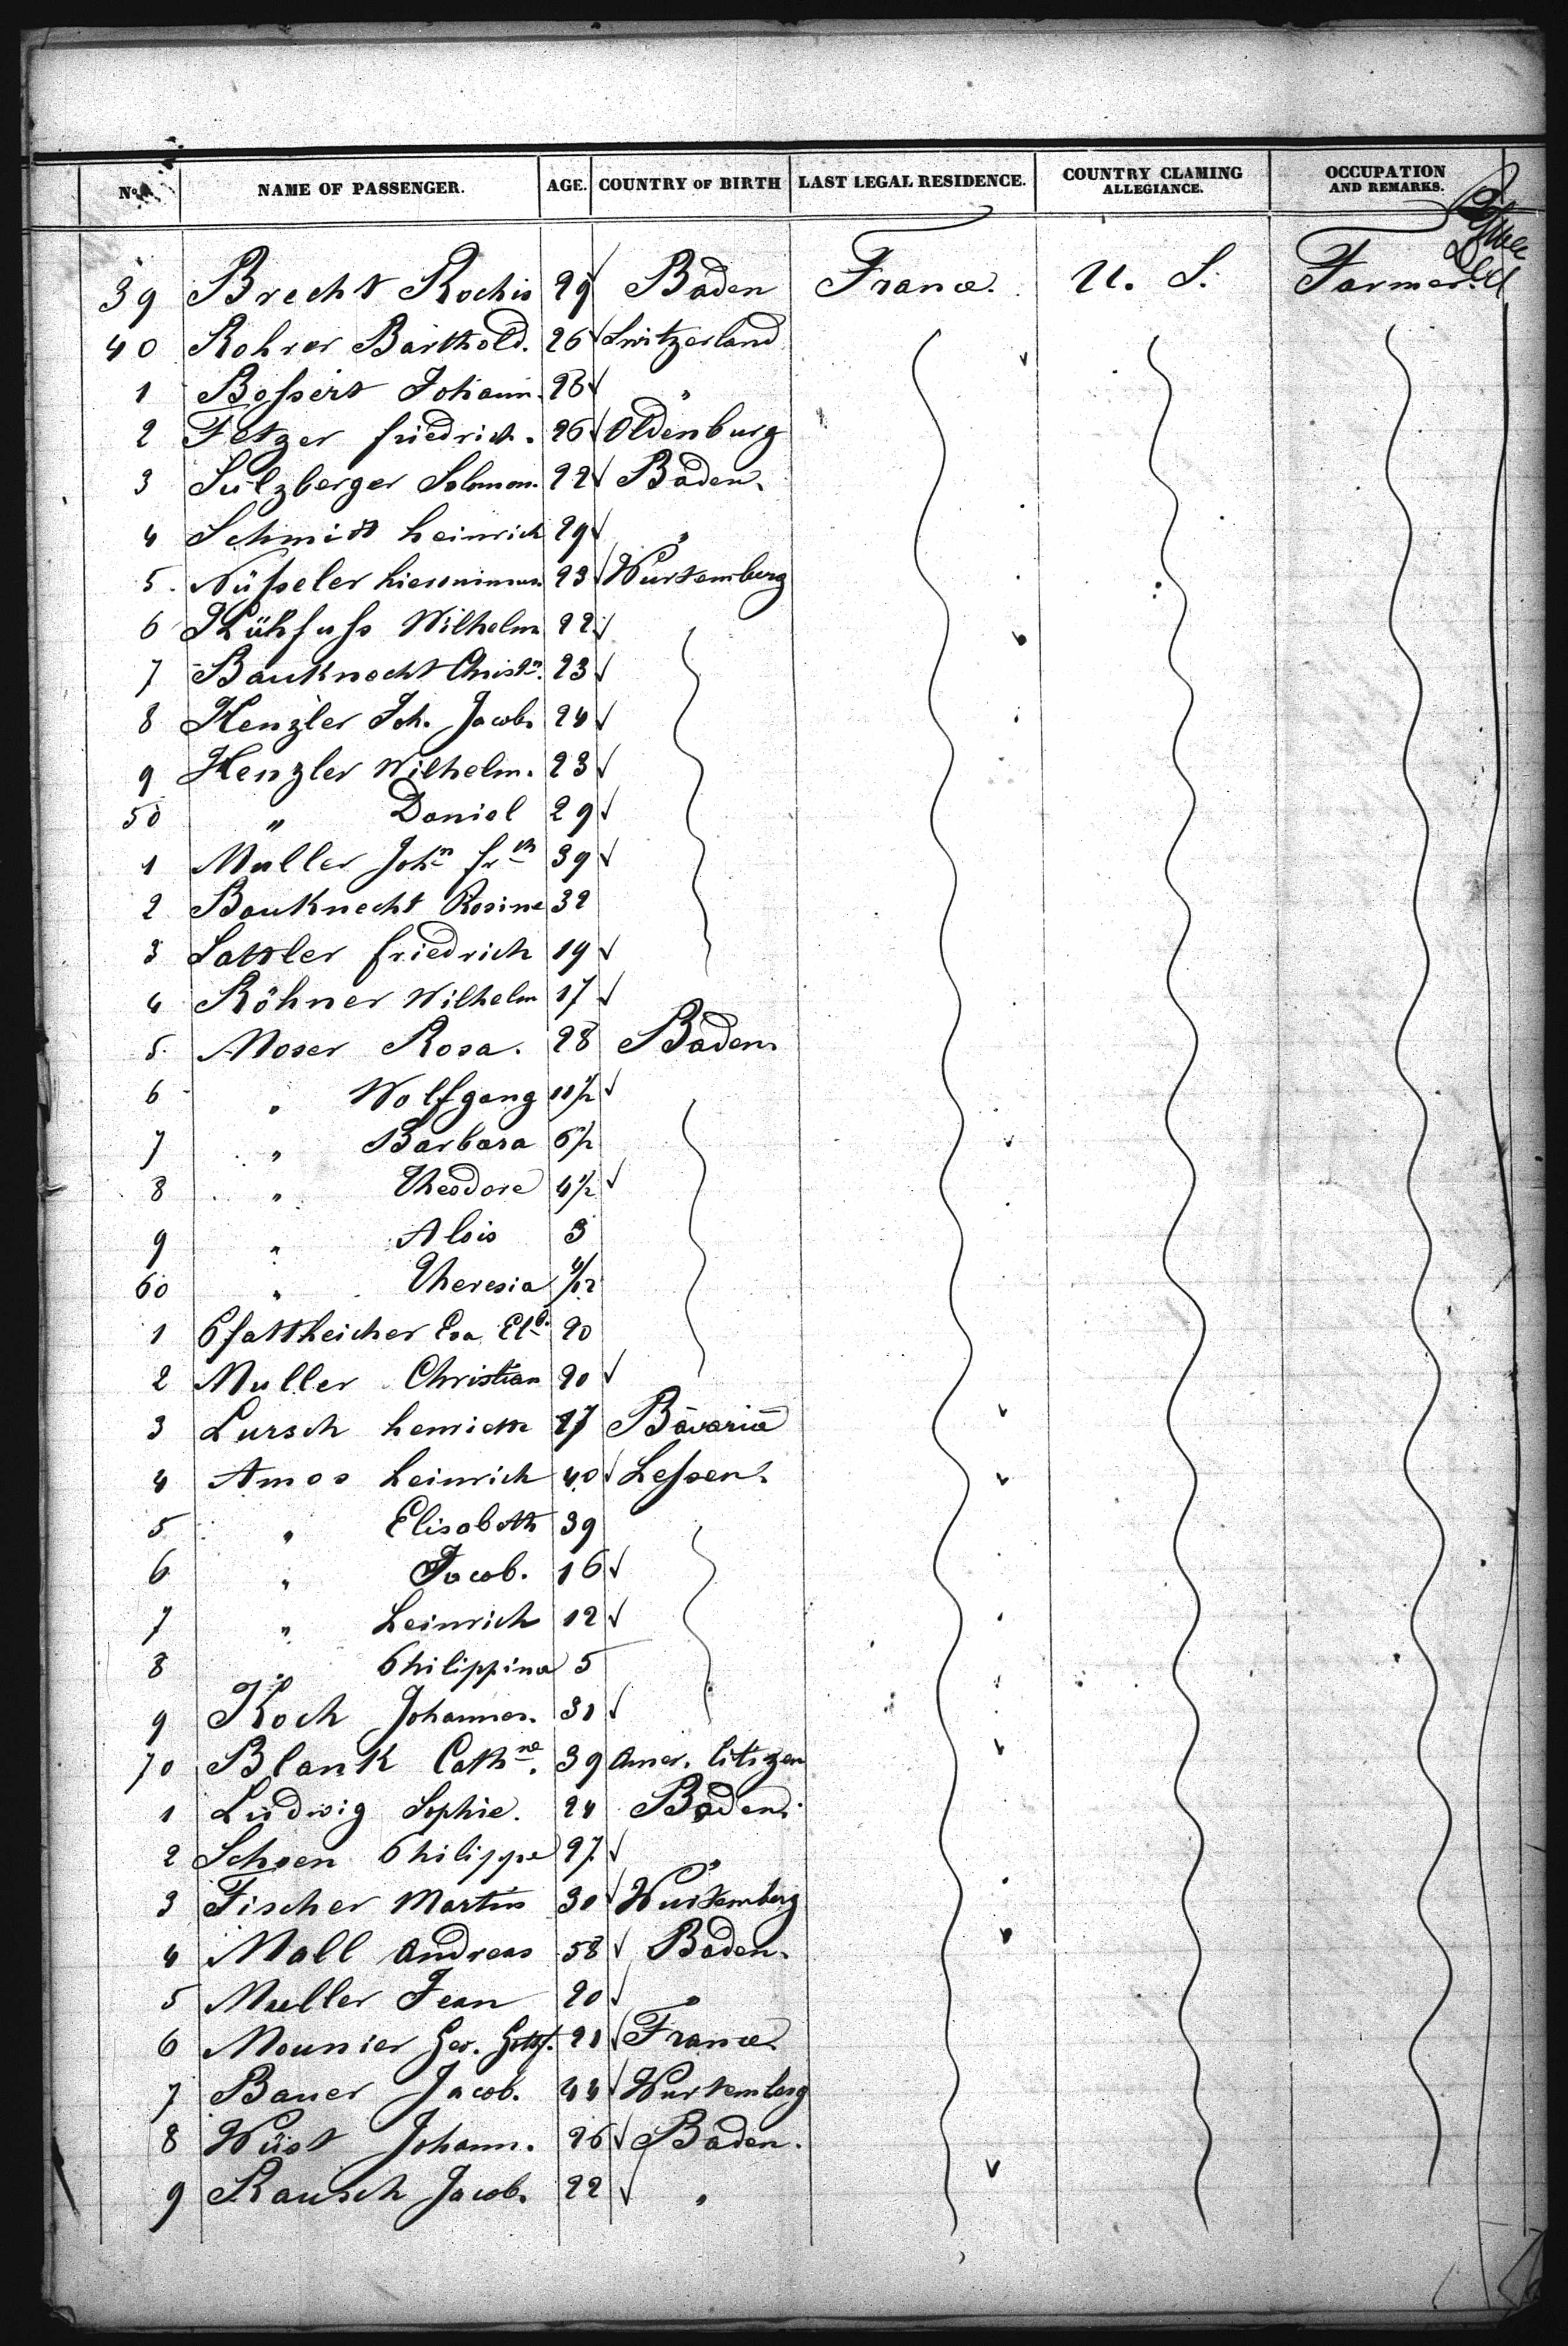 No. NAME OF PASSENGER. AGE. COUNTRY OF BIRTH LAST LEGAL RESIDENCE. COUNTRY CLAMING ALLEGIANCE. OCCUPATION AND REMARKS.
39 Brecht Rochis 29 Baden France. U. S. Farmer.
40 Rohrer Barthold. 26 Switzerland
1 Bossert Johann. 26 "
2 Fetzer friedrich. 26 Oldenburg
3 Sulzberger Solomon. 22 Baden.
4 Schmitt heinrich 29 "
5 Nüsseler hieronimus 23 Wurtemberg
6 Kühfuss Wilhelm 22
7 Bauknecht Christn. 23
8 Henzler Joh. Jacob. 24
9 Henzler Wilhelm. 23
50 " Daniel 29
1 Muller John frch 39
2 Bauknecht Rosine 32
3 Sattler friedrich 19
4 Röhner Wilhelm 17
5 Moser Rosa. 28 Baden.
6 " Wolfgang 11 1/2
7 " Barbara 6 1/2
8 " Theodore 4 1/2
9 " Alois 3
60 " Theresia 4/12
1 Pfattheicher Eva Elb. 20
2 Muller Christian 20
3 Lursch henriette 27 Bavaria
4 Amos heinrich 40 hessen.
5 " Elisabeth 39
6 " Jacob. 16
7 " heinrich 12
8 " Philippina 5
9 Koch Johannes. 31
70 Blank Cathne. 39 Amer. Citizen
1 Ludwig Sophie. 24 Baden.
2 Schoen Philippe 27 "
3 Fischer Martin 30 Wurtemberg
4 Moll Andreas 58 Baden.
5 Muller Jean 20 "
6 Meunier Geo. 21 France
7 Bauer Jacob. 44 Wurtemberg
8 Wüst Johann. 26 Baden.
9 Rausch Jacob. 22 "